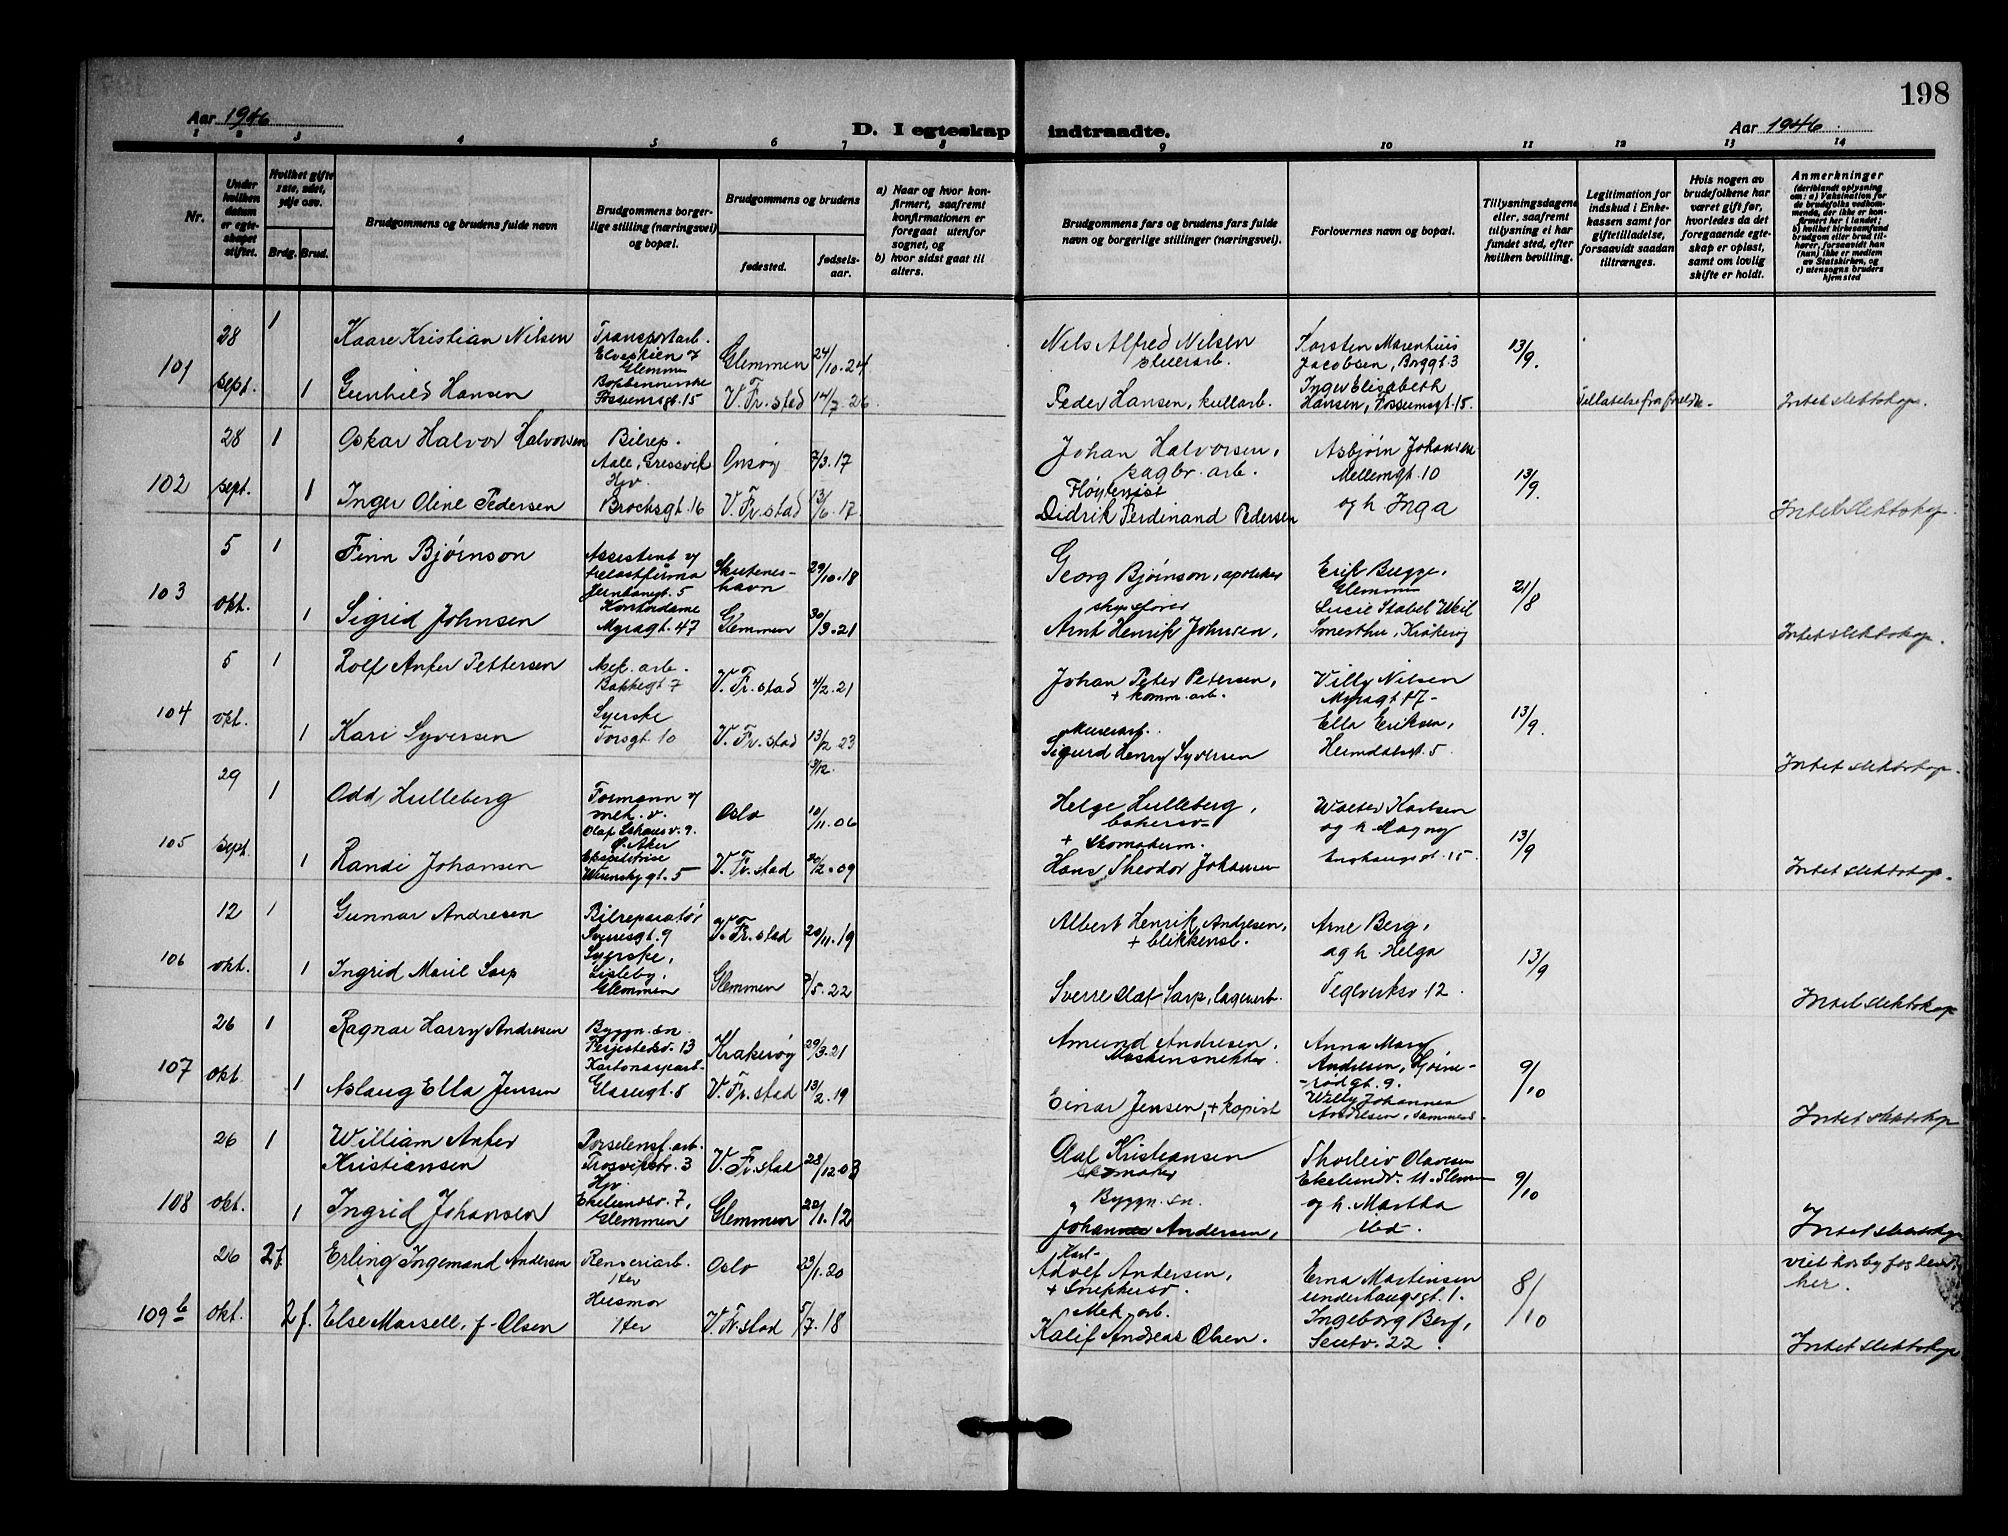 198
Aar 1946
D. I egteskap indtraadte.
Aar 1946
1 2 3 4 5 6 7 8 9 10 11 12 13 14
Nr.
Under hvilken datum er egteskapet stiftet.
Hvilket gifte 1ste, 2det, 3dje osv.
Brdg. Brud.
Brudgommens og brudens fulde navn
Brudgommens borgerlige stilling (næringsvei) og bopæl.
Brudgommens og brudens
fødested.
fødselsaar.
a) Naar og hvor konfirmert, saafremt konfirmationen er foregaat utenfor sognet, og
b) hvor sidst gaat til alters.
Brudgommens fars og brudens fars fulde navn og borgerlige stillinger (næringsvei).
Forlovernes navn og bopæl.
Tillysningsdagene eller, saafremt tillysning ei har fundet sted, efter hvilken bevilling.
Legitimation for indskud i Enkekassen samt for giftetilladelse, forsaavidt saadan tiltrænges.
Hvis nogen av brudefolkene har været gift før, hvorledes da det foregaaende egteskap er opløst, samt om lovlig skifte er holdt.
Anmerkninger
(deriblandt oplysning om: a) Vaksination for de brudefolks vedkommende, der ikke er konfirmert her i landet; b) hvilket kirkesamfund brudgom eller brud tilhører, forsaavidt han (hun) ikke er medlem av Statskirken, og c) utensogns bruders hjemsted
101
28 sept.
1
Kaare Kristian Nilsen
Transportarb.
Glemmen
Glemmen
24/10.24
Nils Alfred Nilsen
Karsten Marenhius
Jacobsen, Borggt. 3
13/9.
1
Gunhild Hansen
Fossumsgt. 15
V. Fr.stad
14/7.26
Peder Hansen, kullarb.
Inger Elisabeth
Hansen, Fossumsgt. 15.
Intet slektskap.
102
28 sept.
1
Oskar Halvor Halvorsen
Bilrep.
Aale, Gressvik
Onsøy
7/3.17
Johan Halvorsen,
sagbr. arb.
Asbjørn Johansen
Mellemgt. 10
13/9.
1
Inger Oline Pedersen
Hjv.
Brochsgt. 16
V. Fr.stad
13/6.17
Didrik Ferdinand Pedersen
og h. Inga
Intet slektskap.
103
5 okt.
1
Finn Bjørnson
Assistent v/
Skutenes-
havn
29/10.18
Georg Bjørnson, apoteker
Erik Bugge,
Glemmen
21/8
1
Sigrid Johnsen
Kontordame
Myragt. 47
Glemmen
30/3.21
Arnt Henrik Johnsen,
Lucie Stabel Weil
Smertu, Kråkerøy
Intet slektskap.
104
5 okt.
1
Rolf Anker Pettersen
Mek. arb.
Bakkegt 7
V. Fr.stad
4/2.21
Johan Peter Petersen,
+ komm. arb.
Villy Nilsen
Myragt 17
13/9.
1
Kari Syversen
Syerske
Torsgt. 10
V. Fr.stad
13/2 23
Murerarb.
Sigurd Henry Syversen
Ella Eriksen,
Heimdalsgt. 5.
Intet slektskap.
105
29 sept.
1
Odd Hulleberg
Formann v/
mek. v.
Ø. Aker
Oslo
10/11.06
Helge Hulleberg,
bakersv
Walter Karlsen
og h. Magny
13/9
1
Randi Johansen
V. Fr.stad
20/12.09
+ Skomakerm.
Hans Theodor Johansen
Intet slektskap.
106
12 okt.
1
Gunnar Andresen
Bilreparatør
Sverresgt. 9
V. Fr.stad
20/11.19
Albert Henrik Andresen,
+ blikkensl.
Arne Berg,
og h. Helga
13/9
1
Ingrid Marie Sarp
Syerske,
Lisleby,
Glemmen
Glemmen
7/5.22
Sverre Olaf Sarp, lagerarb.
Teglverksv 12.
Intet slektskap
107
26 okt.
1
Ragnar Harry Andresen
Byggn. sn.
Krakerøy
29/3.21
Amund Andresen,
Maskinsnekker
Anna Mary
Andresen,
9/10
1
Aslaug Ella Jensen
Kartonasjearb.
Glasugt. 8
V. Fr.stad
13/2.19
Einar Jensen, + kopist
Willy Johannes
Andresen, samme s.
Intet slektskap
108
26 okt.
1
William Anker
Kristiansen
Porselensf. arb.
Trosvikstr. 3
V. Fr.stad
28/12 03
Olaf Kristiansen
skomaker
Thorleiv Olavesen
Ekelundv. 11. Glemm
9/10
1
Ingrid Johansen
Hjv.
Ekelundsv. 7,
Glemmen
Glemmen
22/1.12
Byggn. sn.
Johannes Andersen,
og h. Martha
ibd.
Intet slektskap
109 b
26 okt.
2f.
Erling Ingemand Andersen
Renseriarb.
Her
Oslo
23/1.20
Karl-
Adolf Andersen,
+ Snekkersv.
Erna Martinsen
underhaugsgt. 1.
8/10
her.
2 f.
Else Marsell, f. Olsen
Husmor
Her
V. Fr.stad
5/7.18
Mek. arb.
Kalif Andreas Olsen.
Ingeborg Berg,
Seiersv. 22.
Intet slektskap